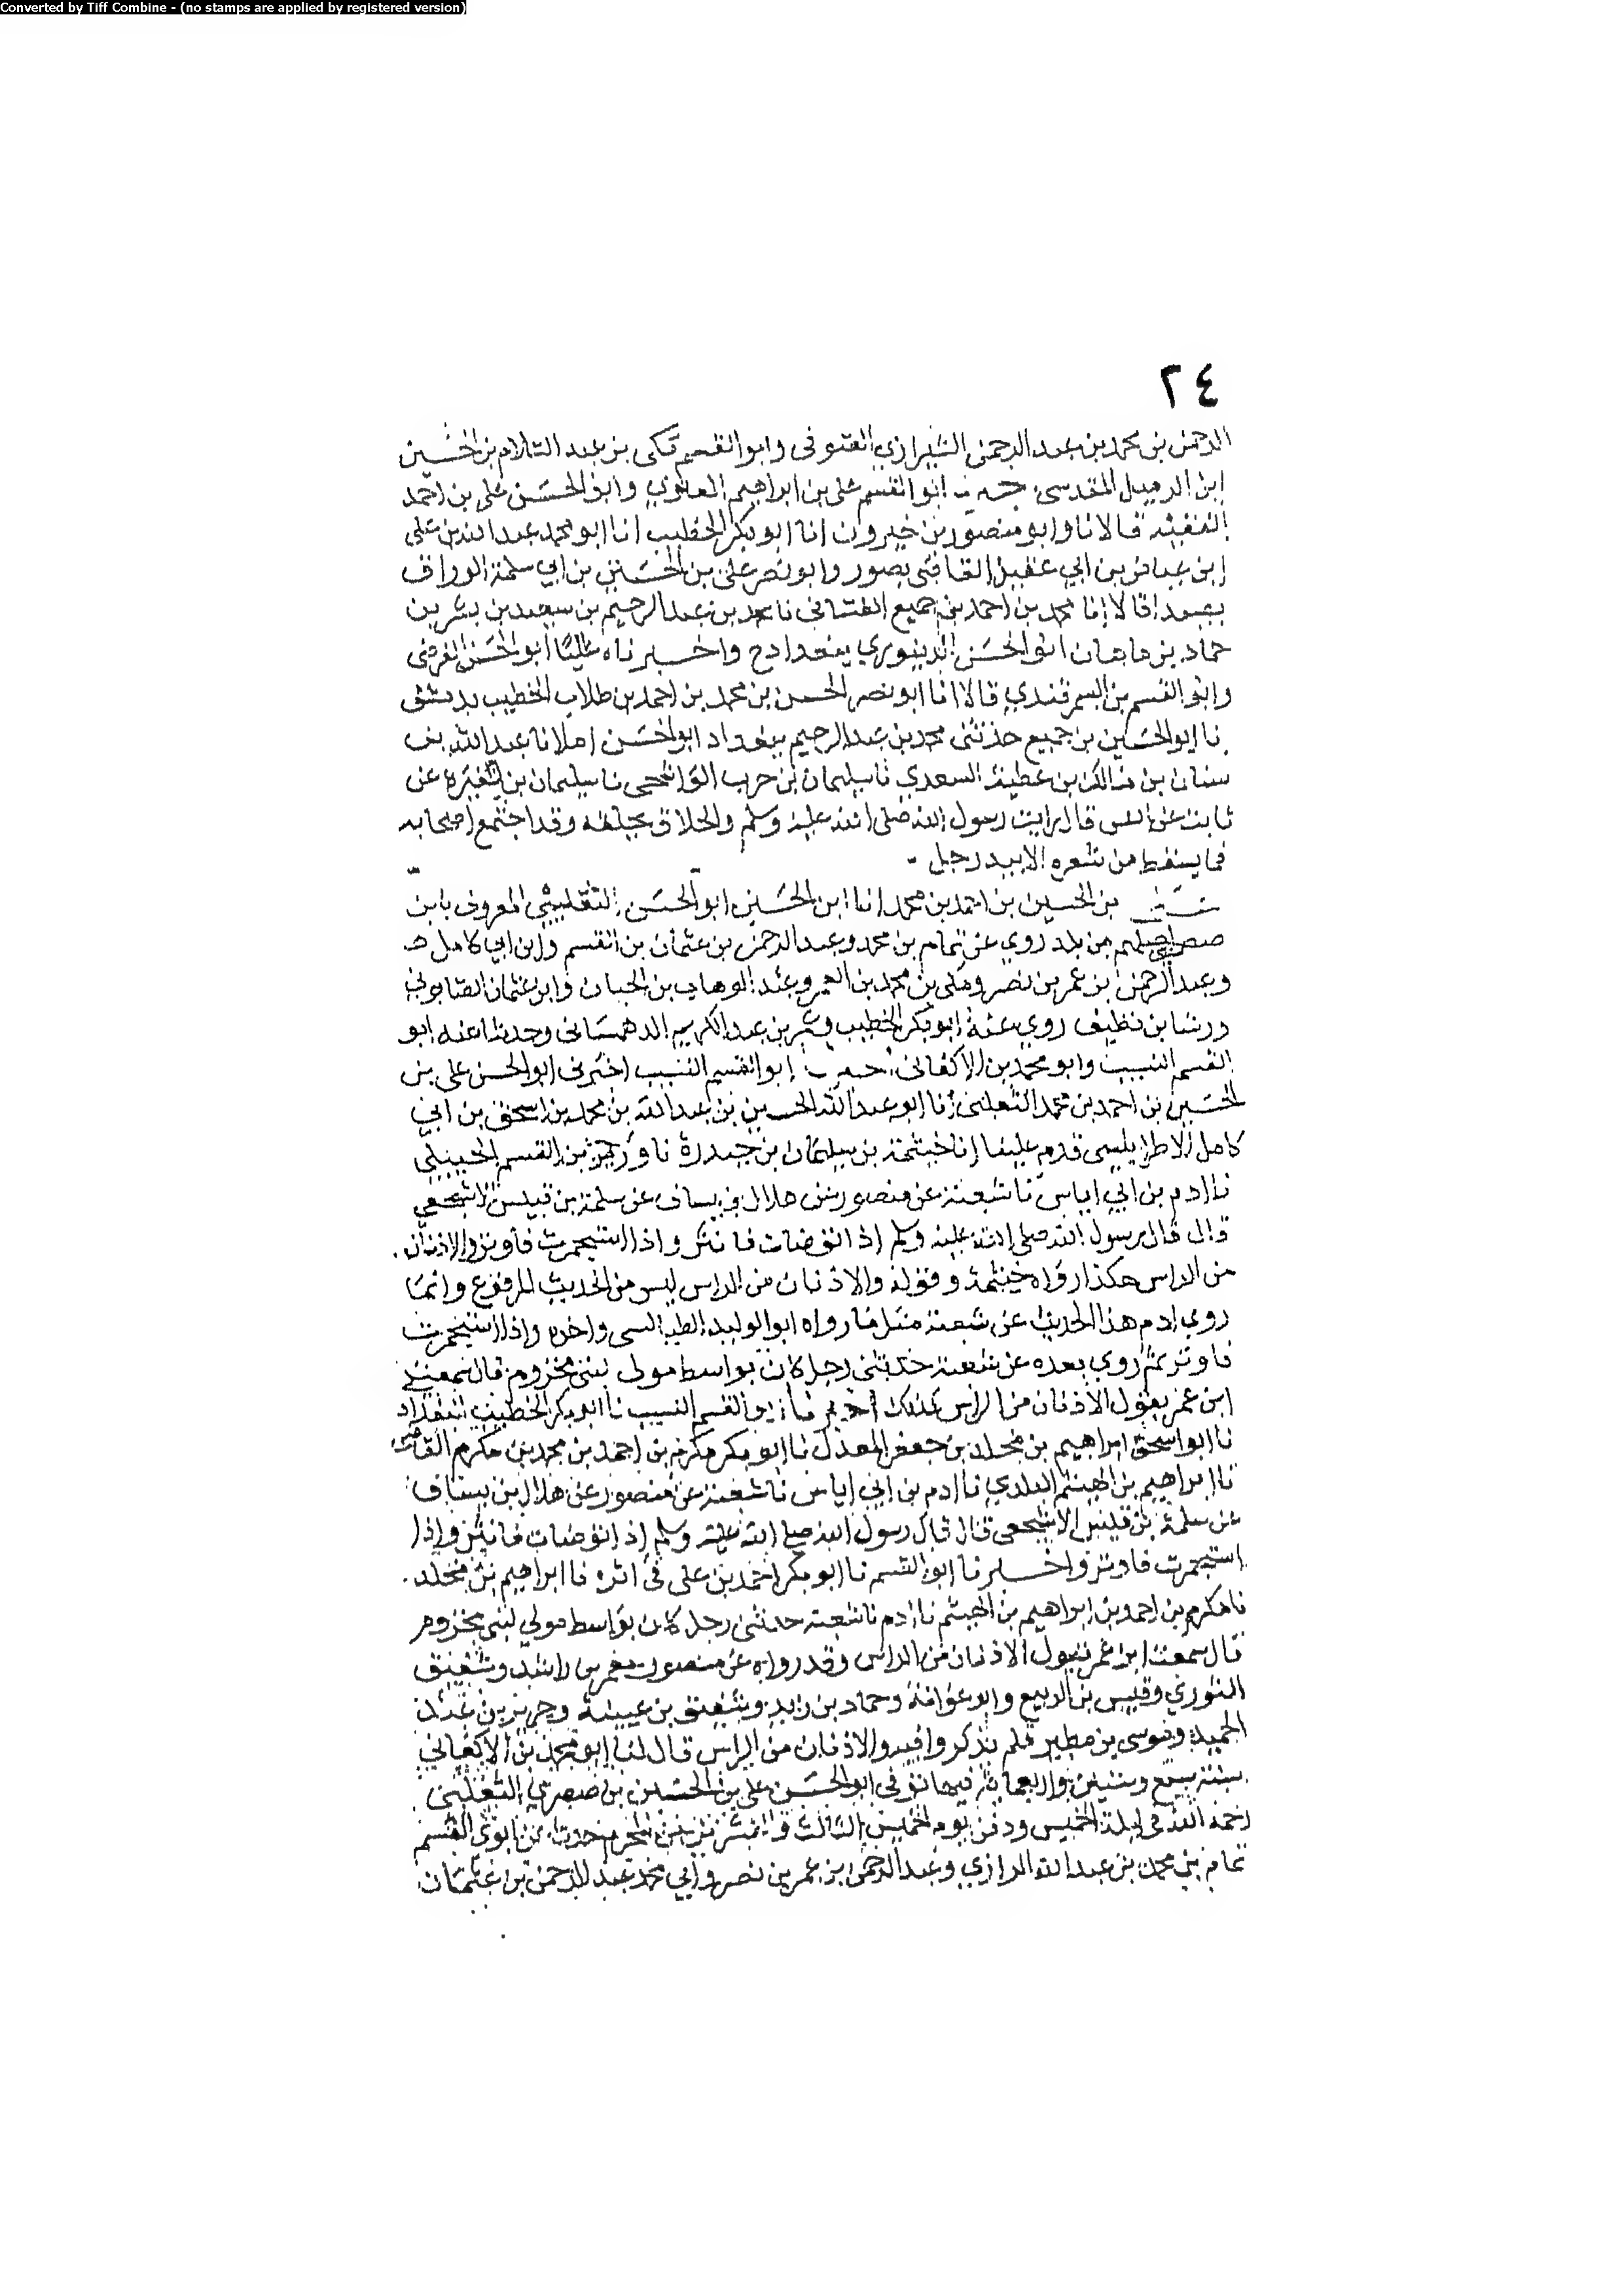 Converted by Tiff Combine - (no stamps are applied by registered version)
٢٤
الرحمن بن محمد بن عبد الرحمن الشيرازي الصوفي وابو القسم مكي بن عبد السلام بن الحسين
ابن الرميلي المقدسي ابو القسم علي بن ابراهيم العلوي وابو الحسن علي بن احمد
الفقيه قالا نا وابو منصور بن خيرون انا ابو بكر الخطيب انا ابو محمد عبد الله بن علي
ابن عياض بن ابي عقيل القاضي بصور وابو نصر علي بن الحسين بن ابي سلمة الوراق
بصيدا قالا انا محمد بن احمد بن جميع الغساني نا محمد بن عبد الرحيم بن سعيد بن بشر بن
حماد بن ماهان ابو الحسن الدينوري ببغداد ح واخبرناه عاليا ابو الحسن الفرضي
وابو القسم بن السمرقندي قالا انا ابو نصر الحسين بن محمد بن احمد بن طلاب الخطيب بدمشق
نا ابو الحسين بن جميع حدثني محمد بن عبد الرحيم ببغداد ابو الحسن املانا عبد الله بن
سنان بن مالك بن عطية السعدي نا سليمان بن حرب الواشحي نا سليمان بن المغيرة عن
ثابت عن انس قال رايت رسول الله صلى الله عليه وسلم والحلاق يحلقه وقد اجتمع اصحابه
فما يسقط من شعره الا بيد رجل
بن الحسين بن احمد بن محمد ابن الحسين ابو الحسن التغلبي المعروف بابن
صصرى اصلهم من بلد روى عن تمام بن محمد وعبد الرحمن بن عثمان بن القسم وابن ابي كامل
وعبد الرحمن بن عمر بن نصر ومكي بن محمد بن الغمر وعبد الوهاب بن الجبان وابن عثمان الصابوني
ورشا بن نظيف روى عنه ابو بكر الخطيب وعمر بن عبد الكريم الدهستاني وحدثنا عنه ابو
القسم النسيب وابو محمد بن الاكفاني ابو القسم النسيب اخبرني ابو الحسن علي بن
الحسين بن احمد بن محمد الثعلبي انا ابو عبد الله الحسين بن عبد الله بن محمد بن اسحق بن ابي
كامل الاطرابلسي قدم علينا انا خيثمة بن سليمان بن حيدرة نا القسم الجبيلي
نا ادم بن ابي اياس نا شعبة عن منصور عن هلال بن يساف عن سلمة بن قيس الاشجعي
قال قال رسول الله صلى الله عليه وسلم اذا توضات فانثر واذا استجمرت فاوتر والاذنان
من الراس هكذا رواه خيثمة وقوله والاذنان من الراس ليس من الحديث المرفوع وانما
روى ادم هذا الحديث عن شعبة مثل ما رواه ابو الوليد الطيالسي واخره واذا استجمرت
فاوتر ثم روى بعده عن شعبة حدثني رجل كان بواسط مولى لبني مخزوم قال سمعت
ابن عمر يقول الاذنان من الراس كذلك اخبرنا ابو القسم النسيب نا ابو بكر الخطيب ببغداد
نا ابو اسحق ابراهيم بن مخلد بن جعفر المعدل نا ابو بكر مكرم بن احمد بن محمد بن مكرم القاضي
نا ابراهيم بن الهيثم البلدي نا ادم بن ابي اياس نا شعبة عن منصور عن هلال بن يساف
عن سلمة بن قيس الاشجعي قال قال رسول الله صلى الله عليه وسلم اذا توضات فانثر واذا
استجمرت فاوتر واخبرنا ابو القسم نا ابو بكر احمد بن علي في اثره نا ابراهيم بن مخلد
نا مكرم بن احمد بن ابراهيم بن الهيثم نا ادم نا شعبة حدثني رجل كان بواسط مولى لبني مخزوم
قال سمعت ابن عمر يقول الاذنان من الراس وقد رواه عن منصور معمر بن راشد وسفين
الثوري وقيس بن الربيع وابو عوانة وحماد بن زيد وسفين بن عيينة وجرير بن عبد
الحميد وموسى بن مطير فلم يذكروا فيه والاذنان من الراس قال لنا ابو محمد بن الاكفاني
سنة سبع وستين واربعمائة فيها توفي ابو الحسن علي بن الحسين بن صصرى الثعلبي
رحمه الله في ليلة الخميس ودفن يوم الخميس الثالث وعشرين من المحرم حدث عن ابوي القسم
تمام بن محمد بن عبد الله الرازي وعبد الرحمن بن عمر بن نصر وابي محمد عبد الرحمن بن عثمان